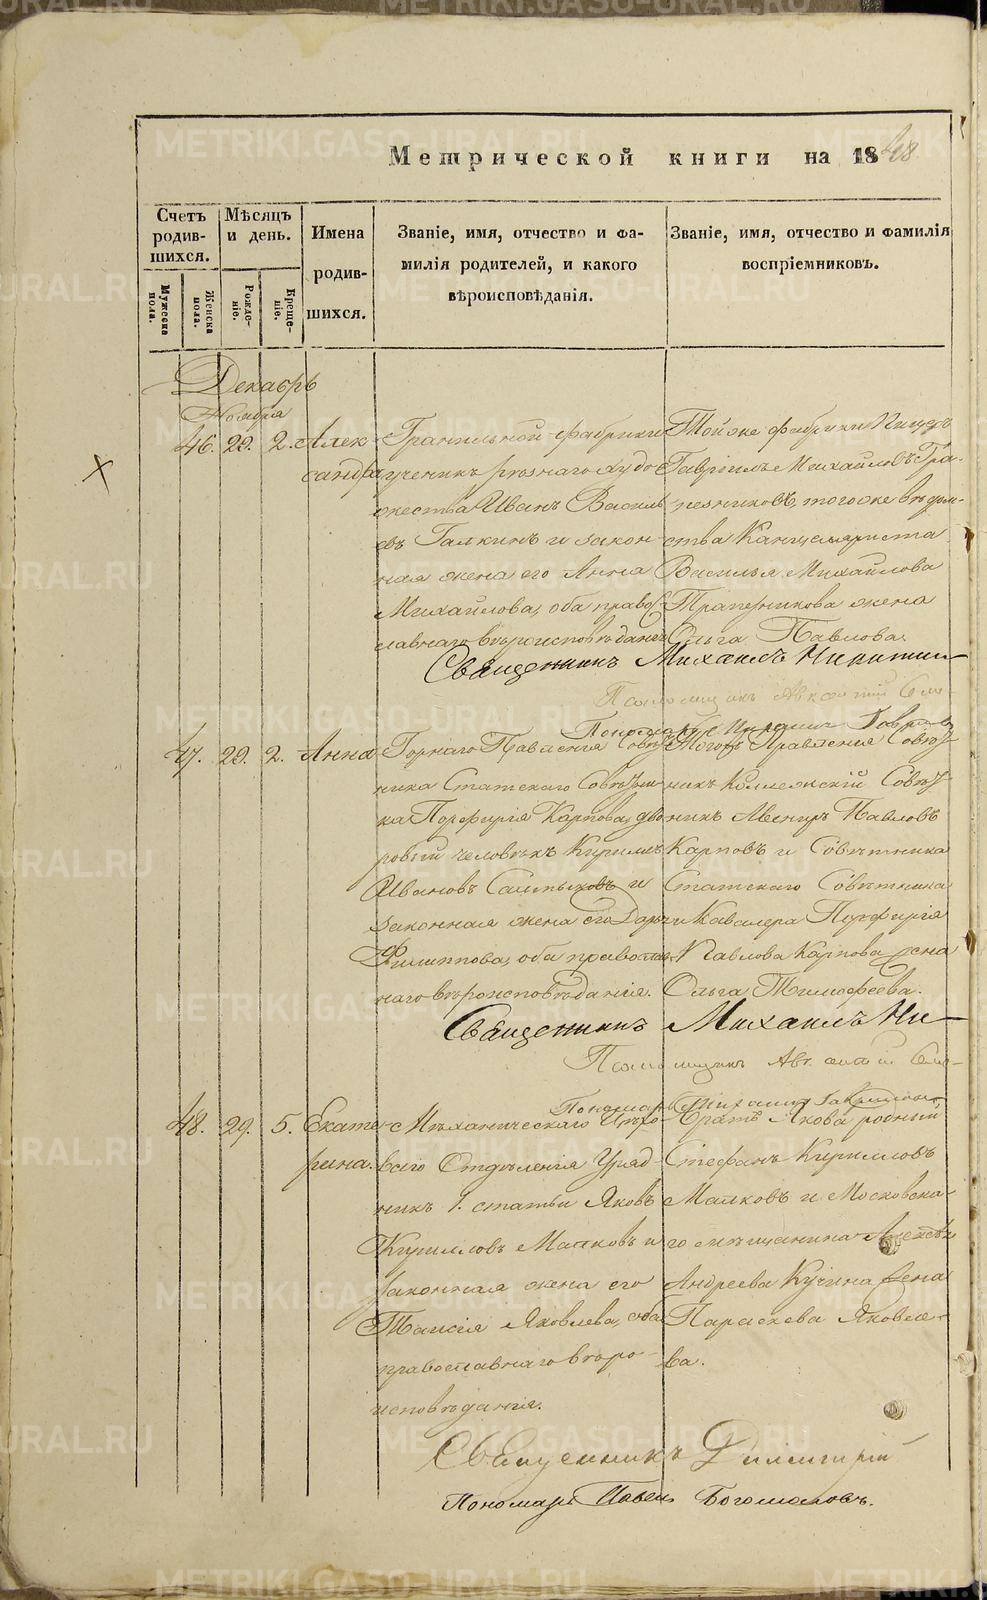 METRIKI.GASO-URAL.RU
Метрической книги на 1848
Счетъ родившихся.
Мѣсяцъ и день.
Имена родившихся.
Званіе, имя, отчество и фамилія родителей, и какого вѣроисповѣданія.
Званіе, имя, отчество и фамилія воспріемниковъ.
Мужеска пола.
Женска пола.
Рожденіе.
Крещеніе.
Декабрь
Ноября
46. 29. 2. Александра
Гранильной фабрики
ученикъ рѣзнаго худо-
жества Иванъ Василь
евъ Галкинъ и закон-
ная жена его Анна
Михайлова, оба право
славнаго вѣроисповѣданія
Тойже фабрики
Гавріилъ Михайловъ
тогоже вѣдом-
ства Канцеляриста
Василья Михайлова
Трапезникова жена
Ольга Павлова.
Священникъ Михаилъ Никитин
47. 29. 2. Анна
Горнаго Правленія Совѣт
ника Статскаго Совѣтни-
ка Порфирія Карпова, дво
ровый человѣкъ Кирилъ
Ивановъ Салтыковъ и
законная жена его Дарья
Филиппова, оба православ-
наго вѣроисповѣданія.
Тогожъ Правленія Совѣт
никъ Коллежскій Совѣт
никъ Авениръ Павловъ
Карповъ и Совѣтника
Статскаго Совѣтника
и Кавалера Порфирія
Павлова Карпова жена
Ольга Тимофеева.
Священникъ Михаилъ Ни
48. 29. 5. Екате-
рина.
Механическаго Цехо-
ваго Отдѣленія Уряд-
никъ 1. статьи Яковъ
Кирилловъ Малковъ и
законная жена его
Таисія Яковлева, оба
православнаго вѣро-
исповѣданія.
Братъ Якова родный
Стефанъ Кирилловъ
Малковъ и Московска-
го мѣщанина Алексѣя
Андреева Кучина жена
Параскева Яковле-
ва.
Священникъ Димитрій
Пономарь Павелъ Богомоловъ.